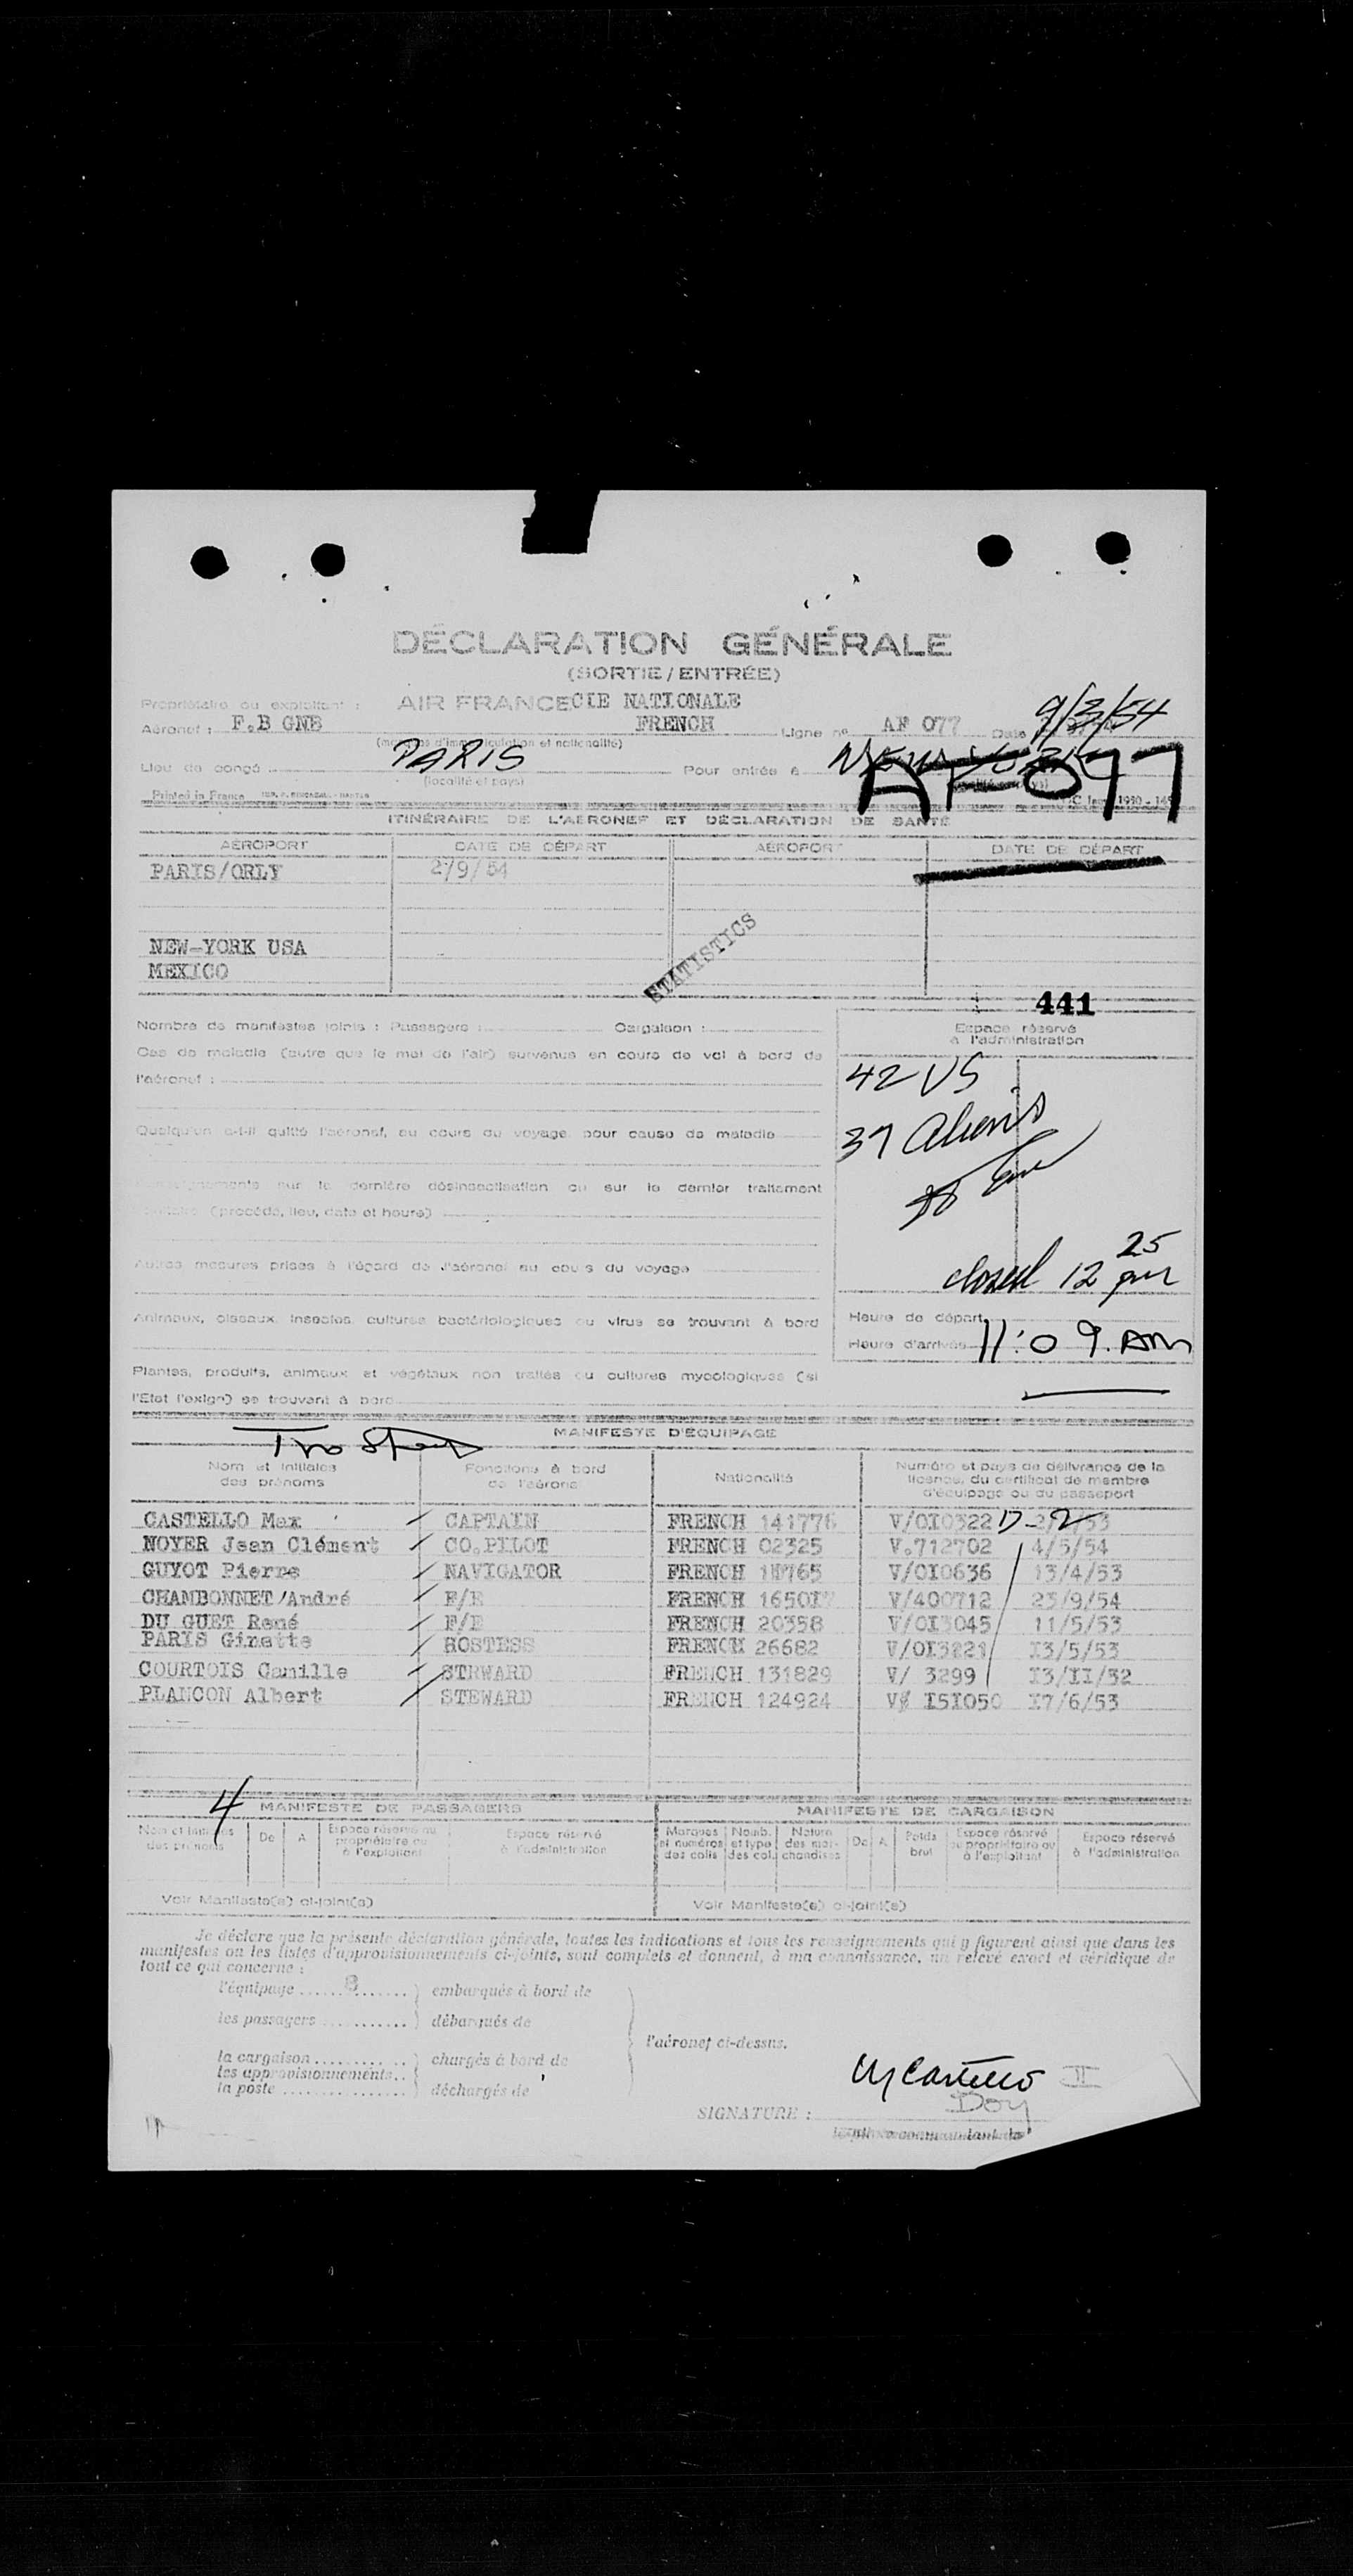 DÉCLARATION GÉNÉRALE
(SORTIE / ENTRÉE)
Propriétaire ou exploitant : AIR FRANCE CIE NATIONALE
Aéronef : F.B GNB FRENCH Ligne no AF 077 Date 9/3/54
(marques d'immatriculation et nationalité)
Lieu de congé PARIS Pour entrée à NEW YORK
(localité et pays)
AF 077
Printed in France
ITINÉRAIRE DE L'AÉRONEF ET DÉCLARATION DE SANTÉ
AÉROPORT DATE DE DÉPART AÉROPORT DATE DE DÉPART
PARIS/ORLY 2/9/54
NEW-YORK USA
MEXICO
STATISTICS
441
Nombre de manifestes joints : Passagers : Cargaison :
Espace réservé
à l'administration
Cas de maladie (autre que le mal de l'air) survenus en cours de vol à bord de
l'aéronef :
42 US
37 Aliens
Quelqu'un a-t-il quitté l'aéronef, au cours du voyage, pour cause de maladie
Renseignements sur la dernière désinsectisation ou sur le dernier traitement
sanitaire (procédé, lieu, date et heure)
closed 12 25 pm
Autres mesures prises à l'égard de l'aéronef au cours du voyage
Animaux, oiseaux, insectes, cultures bactériologiques ou virus se trouvant à bord
Heure de départ
Heure d'arrivée 11:09. AM
Plantes, produits, animaux et végétaux non traités ou cultures mycologiques (si
l'Etat l'exige) se trouvant à bord
MANIFESTE D'ÉQUIPAGE
Nom et initiales
des prénoms
Fonctions à bord
de l'aéronef
Nationalité
Numéro et pays de délivrance de la
licence, du certificat de membre
d'équipage ou du passeport
CASTELLO Max CAPTAIN FRENCH 141776 V/OI0322 D-2
NOYER Jean Clément CO.PILOT FRENCH 02325 V.712702 4/5/54
GUYOT Pierre NAVIGATOR FRENCH V/OI0636 13/4/53
CHAMBONNET André F/E FRENCH 165017 V/400712 23/9/54
DU GUET René F/E FRENCH 20358 V/OI3045 11/5/53
PARIS Ginette HOSTESS FRENCH 26682 V/OI3221 I3/5/53
COURTOIS Camille STEWARD FRENCH 131829 V/ 3299 I3/II/52
PLANCON Albert STEWARD FRENCH 124924 V/ I5I050 I7/6/53
4
MANIFESTE DE PASSAGERS MANIFESTE DE CARGAISON
Nom et initiales
des prénoms
De A
Espace réservé au
propriétaire ou
à l'exploitant
Espace réservé
à l'administration
Marques
et numéros
des colis
Nomb.
et type
des col.
Nature
des mar-
chandises
De A
Poids
brut
Espace réservé
au propriétaire ou
à l'exploitant
Espace réservé
à l'administration
Voir Manifeste(s) ci-joint(s) Voir Manifeste(s) ci-joint(s)
Je déclare que la présente déclaration générale, toutes les indications et tous les renseignements qui y figurent ainsi que dans les
manifestes ou les listes d'approvisionnements ci-joints, sont complets et donnent, à ma connaissance, un relevé exact et véridique de
tout ce qui concerne :
l'équipage 8 embarqués à bord de
les passagers débarqués de
l'aéronef ci-dessus.
la cargaison chargés à bord de
les approvisionnements
la poste déchargés de
M Castello II
SIGNATURE :